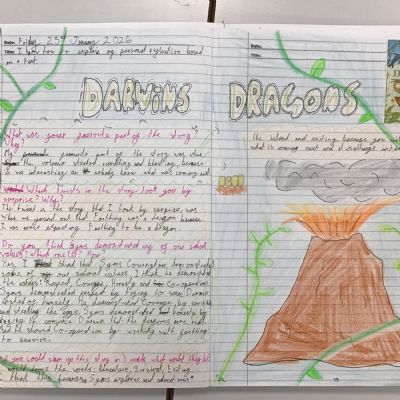 Date: Friday 23rd January 2026
Title: I know how to explore my personal reflection based
on a text.
DARWINS DRAGONS
What was your favourite part of the story?
Why?
My favourite part of the story was when
the volcano started rumbling and blasting, because
it was interesting as nobody knew what was coming
Which twists in the story took you by
surprise? Why?
The twist in the story that took by surprise was
when we found out that Farthing was a dragon because
I was not expecting Farthing to be a dragon.
Do you think Syms demonstrated any of our school
values? What one(s)? How?
Yes, I think that Syms Covington demonstrated
some of our school values. I think he demonstrated
the values: Respect, Courage, Honesty and Co-operation.
Syms demonstrated respect by trying to save Darwin
instead of himself. He demonstrated Courage, by
and stealing the eggs. Syms demonstrated honesty by
trying to convince Darwin that the dragons are real.
And he showed Co-operation by working with Farthing
to survive.
If you could sum up this story in 3 words what would they be?
I would choose the words: Adventure, Survival, Exciting.
I think this because Syms explores and
Date:
Title:
the island and exciting because you
what is coming next and it